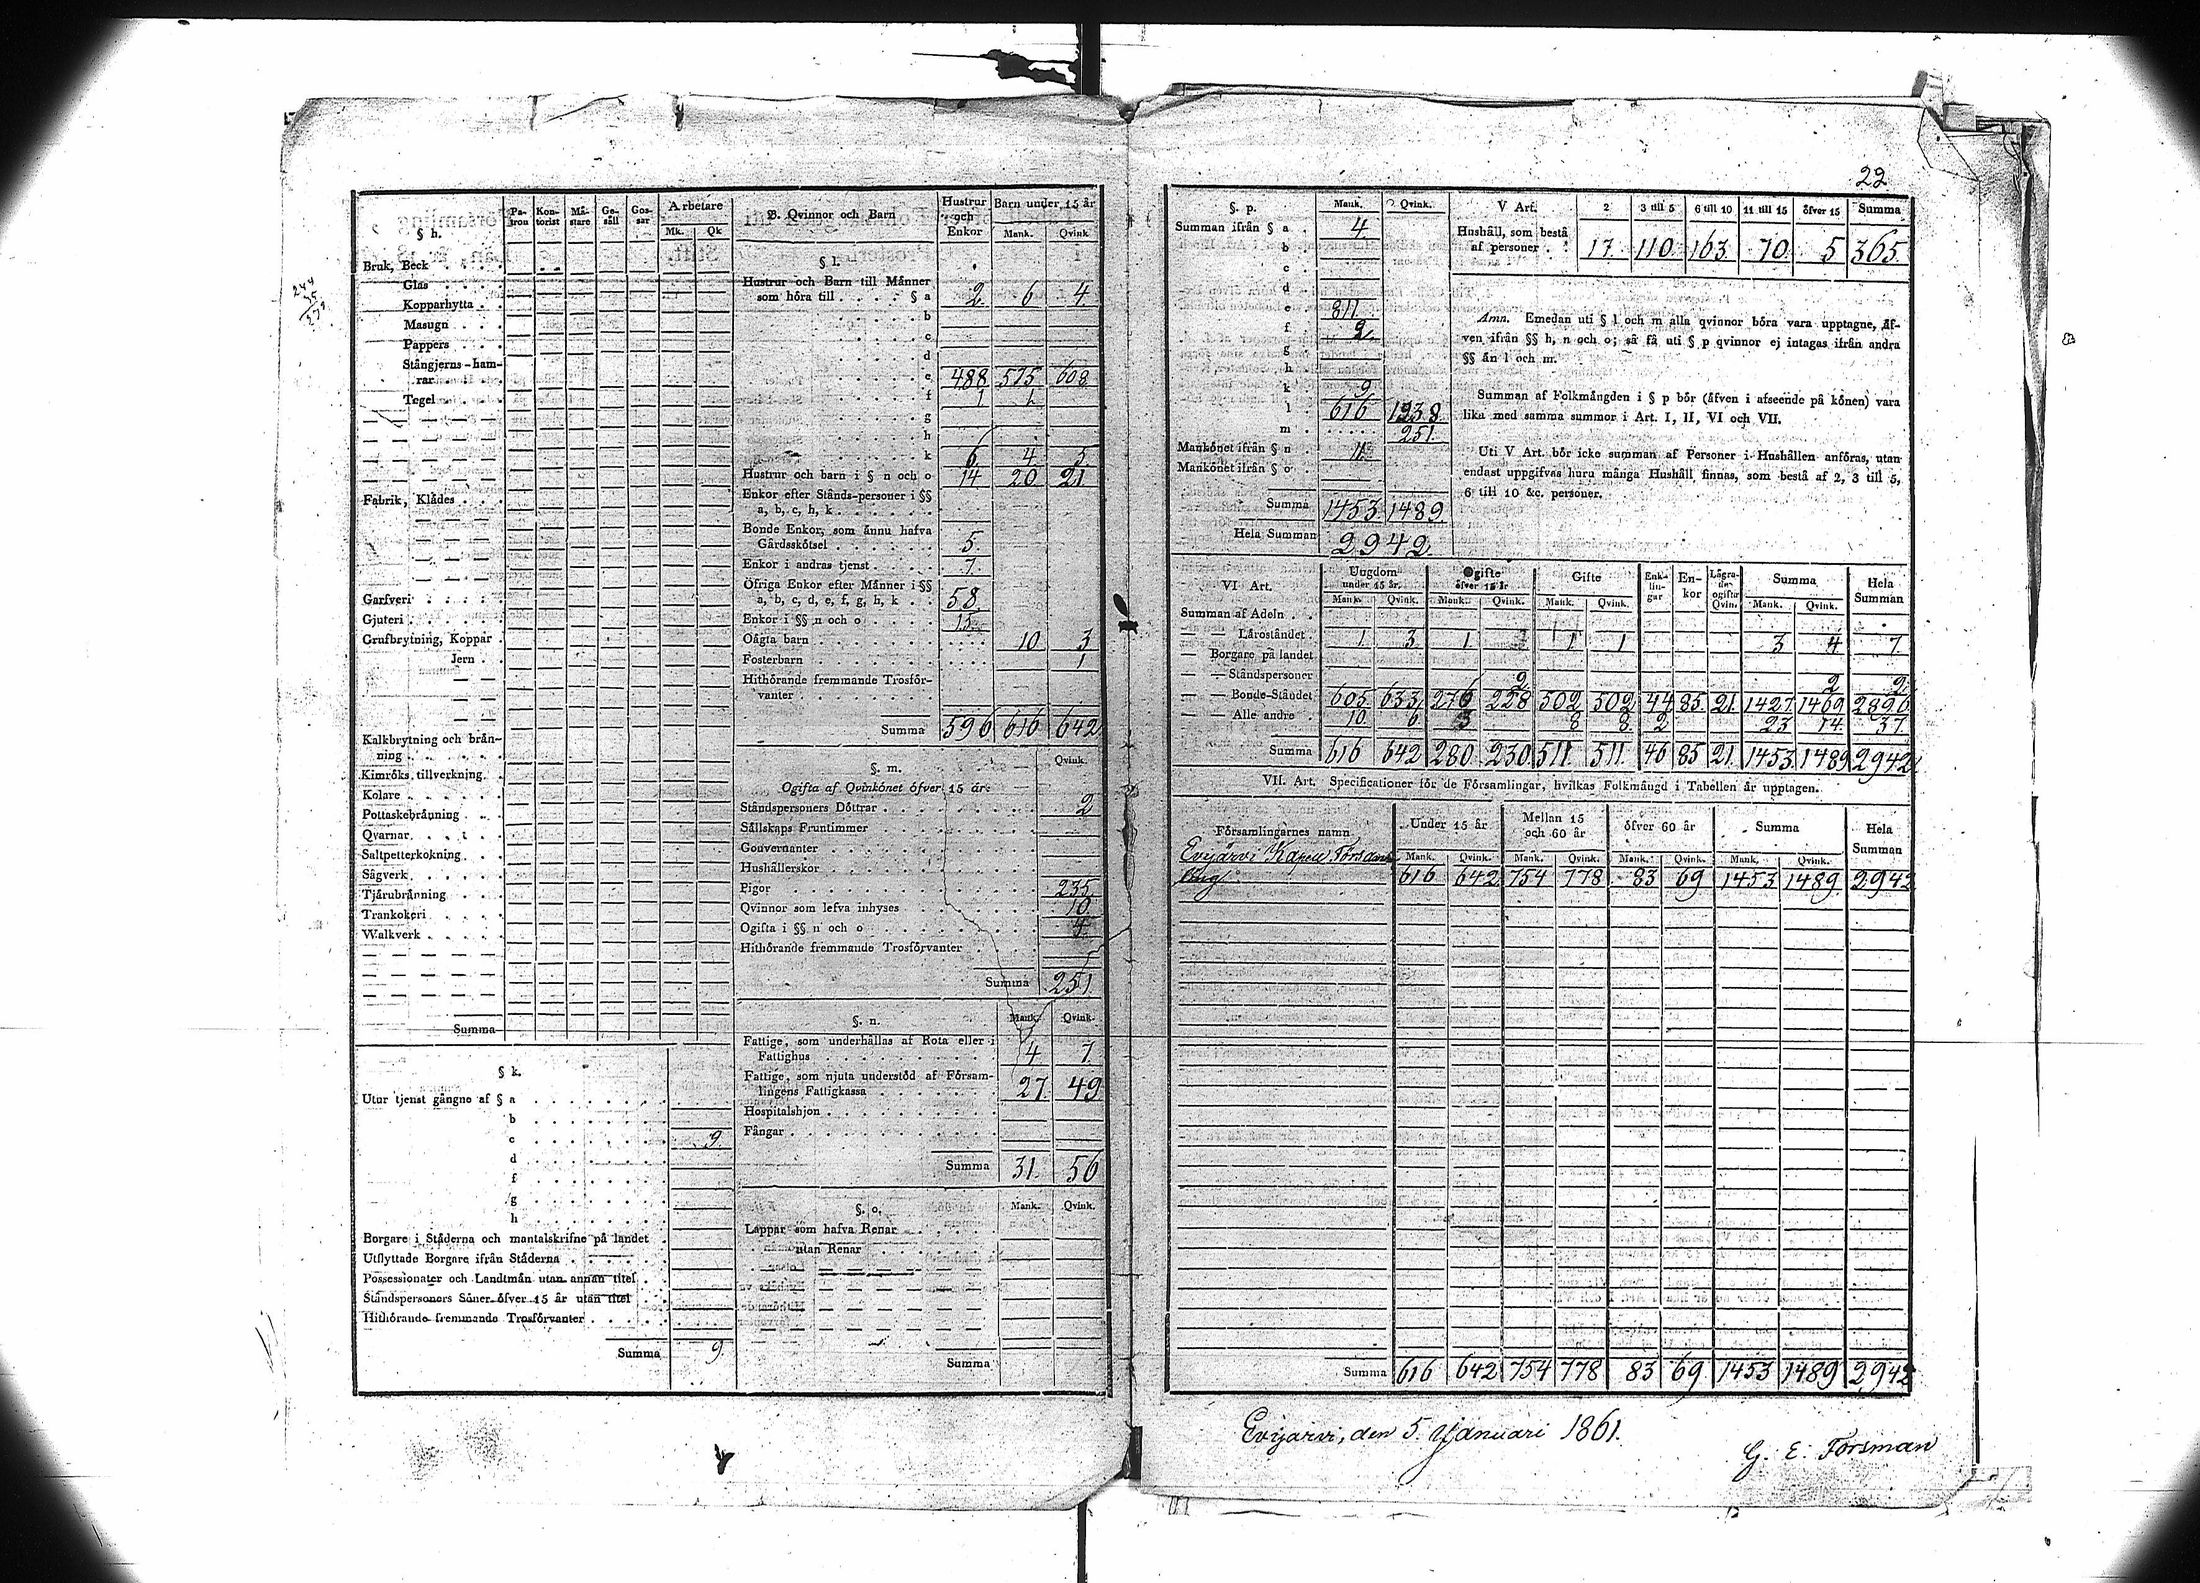 22
§ h.
Pa-tron Kon-torist Mä-stare Ge-säll Gos-sar Arbetare
Mk. Qk
Bruk, Beck . . . .
Glas . . . .
Kopparhytta . .
Masugn . . .
Pappers . . .
Stångjerns-ham-
rar . . . .
Tegel . . . .
Fabrik, Klädes . . .
Garfveri . . . . .
Gjuteri . . . . .
Grufbrytning, Koppar .
Jern . .
Kalkbrytning och brän-
ning . . . . .
Kimröks tillverkning. .
Kolare . . . . .
Pottaskebränning . . .
Qvarnar . . . . .
Saltpetterkokning . . .
Sågverk . . . . .
Tjärubränning . . .
Trankokeri . . . .
Walkverk . . . . .
Summa
§ k.
Utur tjenst gångne af § a . . . . . . .
b . . . . . . .
c . . . . . . . 9.
d . . . . . . .
f . . . . . . .
g . . . . . . .
h . . . . . . .
Borgare i Städerna och mantalskrifne på landet .
Utflyttade Borgare ifrån Städerna . . . . .
Possessionater och Landtmän utan annan titel .
Ståndspersoners Söner öfver 15 år utan titel . .
Hithörande fremmande Trosförvanter . . . .
Summa 9.
B. Qvinnor och Barn
Hustrur och Enkor Barn under 15 år
Mank. Qvink
§ l.
Hustrur och Barn till Männer
som höra till . . . . § a 2. 6 4.
. . . . . . b
. . . . . . c
d
. . . . . . e 488 575 608
. . . . . . f 1 1.
. . . . . . g
. . . . . . h
. . . . . . k 6. 4. 5.
Hustrur och barn i § n och o 14 20 21
Enkor efter Stånds-personer i §§
a, b, c, h, k . . . . . .
Bonde Enkor, som ännu hafva
Gårdsskötsel . . . . . . 5.
Enkor i andras tjenst . . . . 7.
Öfriga Enkor efter Männer i §§
a, b, c, d, e, f, g, h, k . . 58.
Enkor i §§ n och o . . . . . 15.
Oägta barn . . . . . . . 10 3
Fosterbarn . . . . . . . 1
Hithörande fremmande Trosför-
vanter . . . . . . . .
Summa 596 616 642
§. m. Qvink.
Ogifta af Qvinkönet öfver 15 år:
Ståndspersoners Döttrar . . . . . . . 2
Sällskaps Fruntimmer . . . . . . .
Gouvernanter . . . . . . . . .
Hushållerskor . . . . . . . . .
Pigor . . . . . . . . . . . 235
Qvinnor som lefva inhyses . . . . . 10.
Ogifta i §§ n och o . . . . . . . 4.
Hithörande fremmande Trosförvanter . . .
Summa 251
§. n. Mank. Qvink.
Fattige, som underhållas af Rota eller i
Fattighus . . . . . . . . . 4 7.
Fattige, som njuta understöd af Försam-
lingens Fattigkassa . . . . . . 27. 49
Hospitalshjon . . . . . . . . .
Fångar . . . . . . . . . . .
Summa 31. 56
§. o. Mank. Qvink.
Lappar som hafva Renar . . . . .
utan Renar . . . . .
Summa
§. p. Mank. Qvink.
Summan ifrån § a . 4.
b .
c .
d .
e . 811.
f . 2.
g .
h .
k . 9.
l . 616 1238.
m . . . . . 251.
Mankönet ifrån § n . 11.
Mankönet ifrån § o .
Summa 1453. 1489.
Hela Summan 2942.
V Art. 2 3 till 5 6 till 10 11 till 15 öfver 15 Summa
Hushåll, som bestå
af personer . . 17. 110 163. 70. 5 365.
Anm. Emedan uti § l och m alla qvinnor böra vara upptagne, äf-
ven ifrån §§ h, n och o; så få uti § p qvinnor ej intagas ifrån andra
§§ än l och m.
Summan af Folkmängden i § p bör (äfven i afseende på könen) vara
lika med samma summor i Art. I, II, VI och VII.
Uti V Art. bör icke summan af Personer i Hushållen anföras, utan
endast uppgifvas huru många Hushåll finnas, som bestå af 2, 3 till 5,
6 till 10 &c. personer.
VI Art. Ungdom under 15 år. Ogifte öfver 15 år Gifte Enk-lin-gar En-kor Lägra-de ogifta Qvin. Summa Hela Summan
Mank. Qvink. Mank. Qvink. Mank. Qvink. Mank. Qvink.
Summan af Adeln . .
— — Läroståndet . 1. 3. 1. 1 1 3 4 7.
— Borgare på landet
— — Ståndspersoner 2. 2 2.
— — Bonde-Ståndet 605 633 276 228 502 502 44 85. 21. 1427. 1469 2896
— — Alle andre . 10. 6. 3 8 8. 2 23 14. 37.
Summa 616 642 280. 230. 511. 511. 46 85 21. 1453. 1489 2942
VII. Art. Specificationer för de Församlingar, hvilkas Folkmängd i Tabellen är upptagen.
Församlingarnes namn Under 15 år Mellan 15 och 60 år öfver 60 år Summa Hela Summan
Mank. Qvink. Mank. Qvink. Mank. Qvink. Mank. Qvink.
Evijärvi Kapell Försam
ling 616 642 754 778 83 69 1453 1489 2942
Summa 616 642 754 778 83 69 1453 1489 2942
Evijärvi, den 5. Januari 1861.
G. E. Forsman